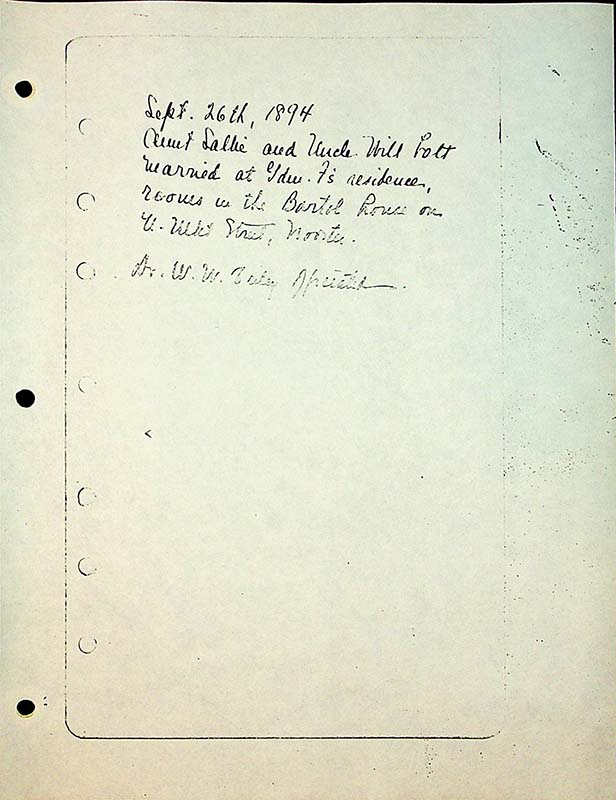 Sept. 26th, 1894
Aunt Sallie and Uncle Will Fott
married at Gdm. F's residence,
rooms in the Bartol House on
N. Mkt Street, Wooster.
Dr. W. W. officiated